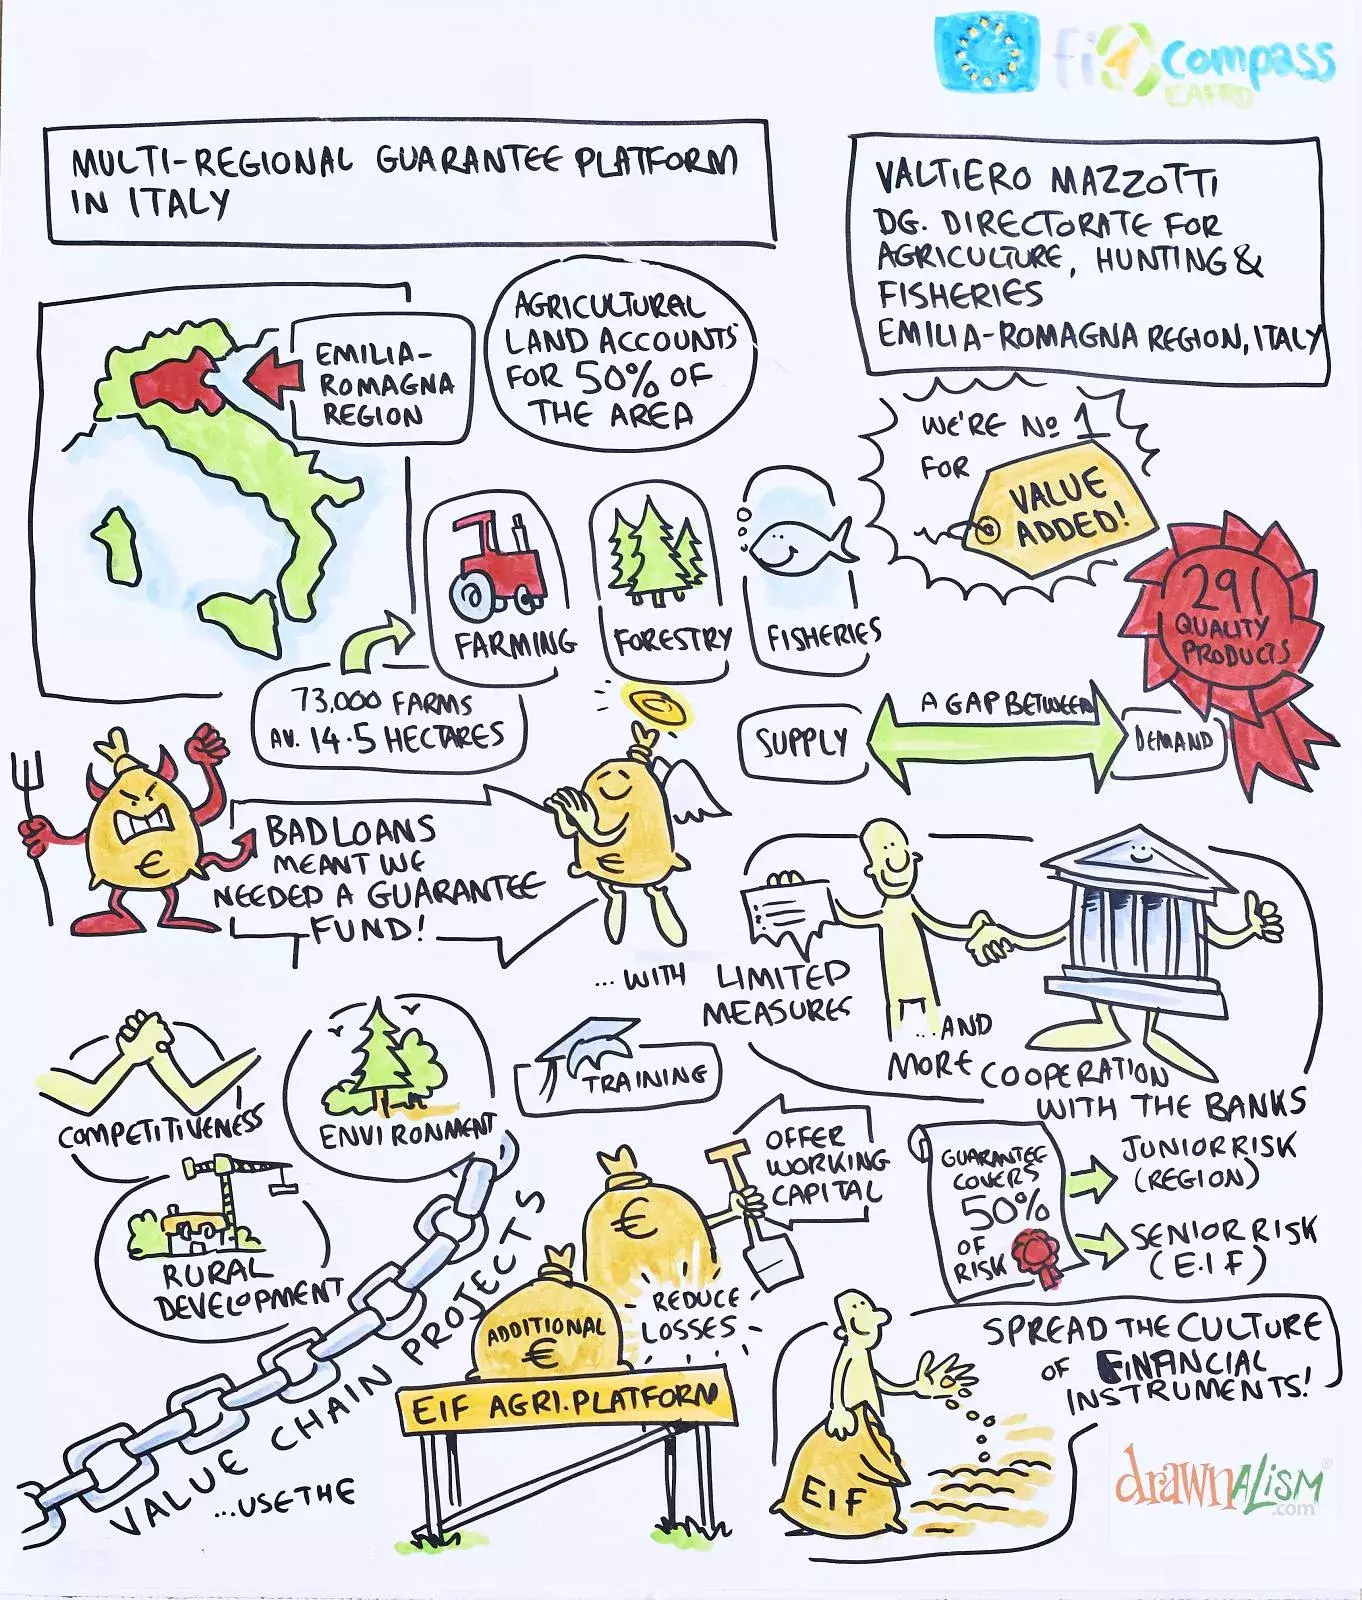 fi compass
EAFRD
MULTI-REGIONAL GUARANTEE PLATFORM
IN ITALY
VALTIERO MAZZOTTI
DG. DIRECTORATE FOR
AGRICULTURE, HUNTING &
FISHERIES
EMILIA-ROMAGNA REGION, ITALY
EMILIA-
ROMAGNA
REGION
AGRICULTURAL
LAND ACCOUNTS
FOR 50% OF
THE AREA
WE'RE No 1
FOR
VALUE
ADDED!
291
QUALITY
PRODUCTS
FARMING
FORESTRY
FISHERIES
73,000 FARMS
AV. 14.5 HECTARES
SUPPLY
A GAP BETWEEN
DEMAND
€
BAD LOANS
MEANT WE
NEEDED A GUARANTEE
FUND!
€
...WITH LIMITED
MEASURES
...AND
MORE COOPERATION
WITH THE BANKS
COMPETITIVENESS
ENVIRONMENT
TRAINING
RURAL
DEVELOPMENT
VALUE CHAIN PROJECTS
...USE THE
OFFER
WORKING
CAPITAL
€
ADDITIONAL
€
REDUCE
LOSSES
EIF AGRI.PLATFORM
GUARANTEE
COVERS
50%
OF
RISK
JUNIOR RISK
(REGION)
SENIOR RISK
(E.I.F)
SPREAD THE CULTURE
OF FINANCIAL
INSTRUMENTS!
EIF
drawnALISM®
.com